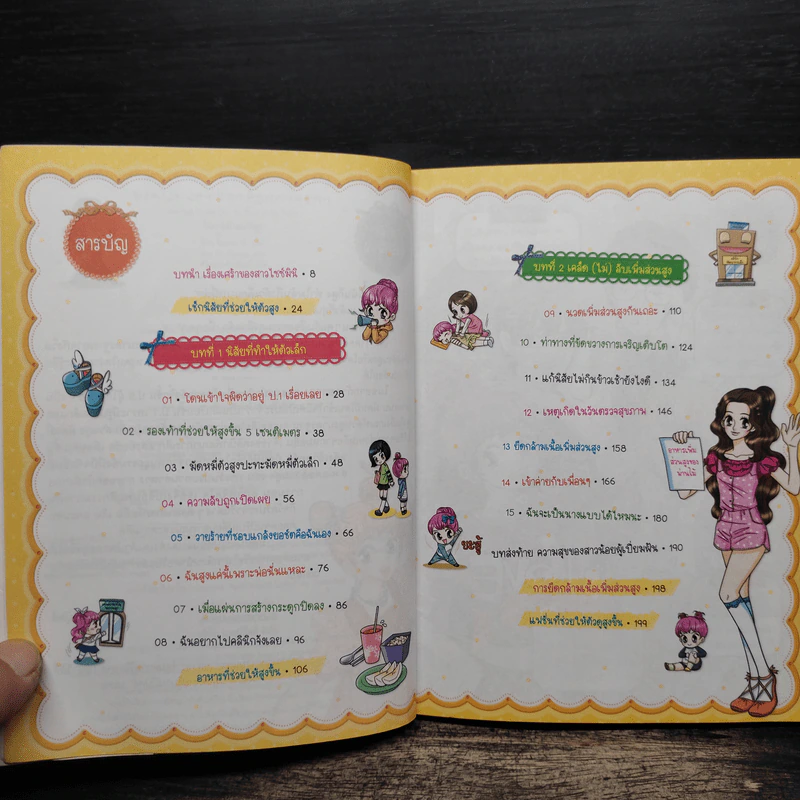 สารบัญ
บทนำ เรื่องเศร้าของสาวไซซ์มินิ • 8
เช็กนิสัยที่ช่วยให้ตัวสูง • 24
บทที่ 1 นิสัยที่ทำให้ตัวเล็ก
01 • โดนเข้าใจผิดว่าอยู่ ป.1 เรื่อยเลย • 28
02 • รองเท้าที่ช่วยให้สูงขึ้น 5 เซนติเมตร • 38
03 • มัดหมี่ตัวสูงปะทะมัดหมี่ตัวเล็ก • 48
04 • ความลับถูกเปิดเผย • 56
05 • วายร้ายที่ชอบแกล้งยอชัตคือฉันเอง • 66
06 • ฉันสูงแค่นี้เพราะพ่อนั่นแหละ • 76
07 • เมื่อแผ่นการสร้างกระดูกปิดลง • 86
08 • ฉันอยากไปคลินิกจังเลย • 96
อาหารที่ช่วยให้สูงขึ้น • 106
บทที่ 2 เคล็ด (ไม่) ลับเพิ่มส่วนสูง
09 • นวดเพิ่มส่วนสูงกันเถอะ • 110
10 • ท่าทางที่ขัดขวางการเจริญเติบโต • 124
11 • แก้นิสัยไม่กินข้าวเช้ายังไงดี • 134
12 • เหตุเกิดในวันตรวจสุขภาพ • 146
13 ยืดกล้ามเนื้อเพิ่มส่วนสูง • 158
14 • เข้าค่ายกับเพื่อนๆ • 166
15 • ฉันจะเป็นนางแบบได้ไหมนะ • 180
บทส่งท้าย ความสุขของสาวน้อยผู้เปี่ยมฝัน • 190
การยืดกล้ามเนื้อเพิ่มส่วนสูง • 198
แฟชั่นที่ช่วยให้ตัวดูสูงขึ้น • 199
อาหารเพิ่ม
ส่วนสูงของ